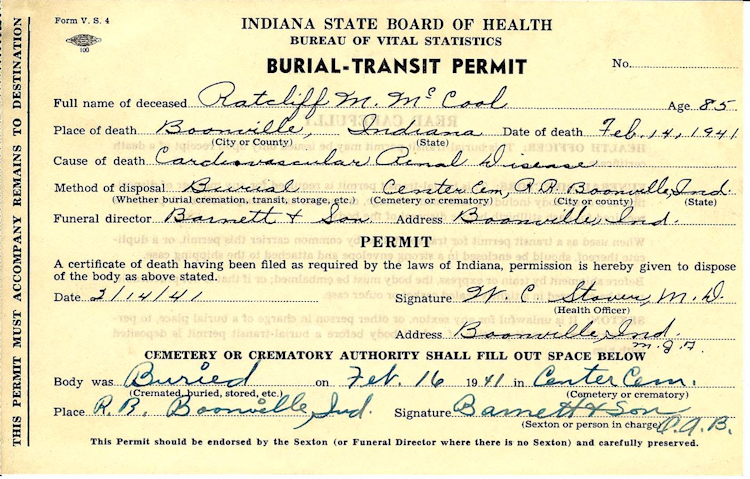 Form V. S. 4
100
INDIANA STATE BOARD OF HEALTH
BUREAU OF VITAL STATISTICS
BURIAL-TRANSIT PERMIT
No.
Full name of deceased Ratcliff M. McCool Age 85
Place of death Boonville, Indiana Date of death Feb. 14, 1941
(City or County) (State)
Cause of death Cardiovascular Renal Disease
Method of disposal Burial Center Cem, R.R. Boonville, Ind.
(Whether burial cremation, transit, storage, etc.) (Cemetery or crematory) (City or county) (State)
Funeral director Barnett & Son Address Boonville, Ind.
PERMIT
A certificate of death having been filed as required by the laws of Indiana, permission is hereby given to dispose
of the body as above stated.
Date 2/14/41 Signature W. C. Stover, M.D.
(Health Officer)
Address Boonville, Ind.
CEMETERY OR CREMATORY AUTHORITY SHALL FILL OUT SPACE BELOW
Body was Buried on Feb. 16 1941 in Center Cem.
(Cremated, buried, stored, etc.) (Cemetery or crematory)
Place R.R. Boonville, Ind. Signature Barnett & Son
(Sexton or person in charge) C.A.B.
This Permit should be endorsed by the Sexton (or Funeral Director where there is no Sexton) and carefully preserved.
THIS PERMIT MUST ACCOMPANY REMAINS TO DESTINATION